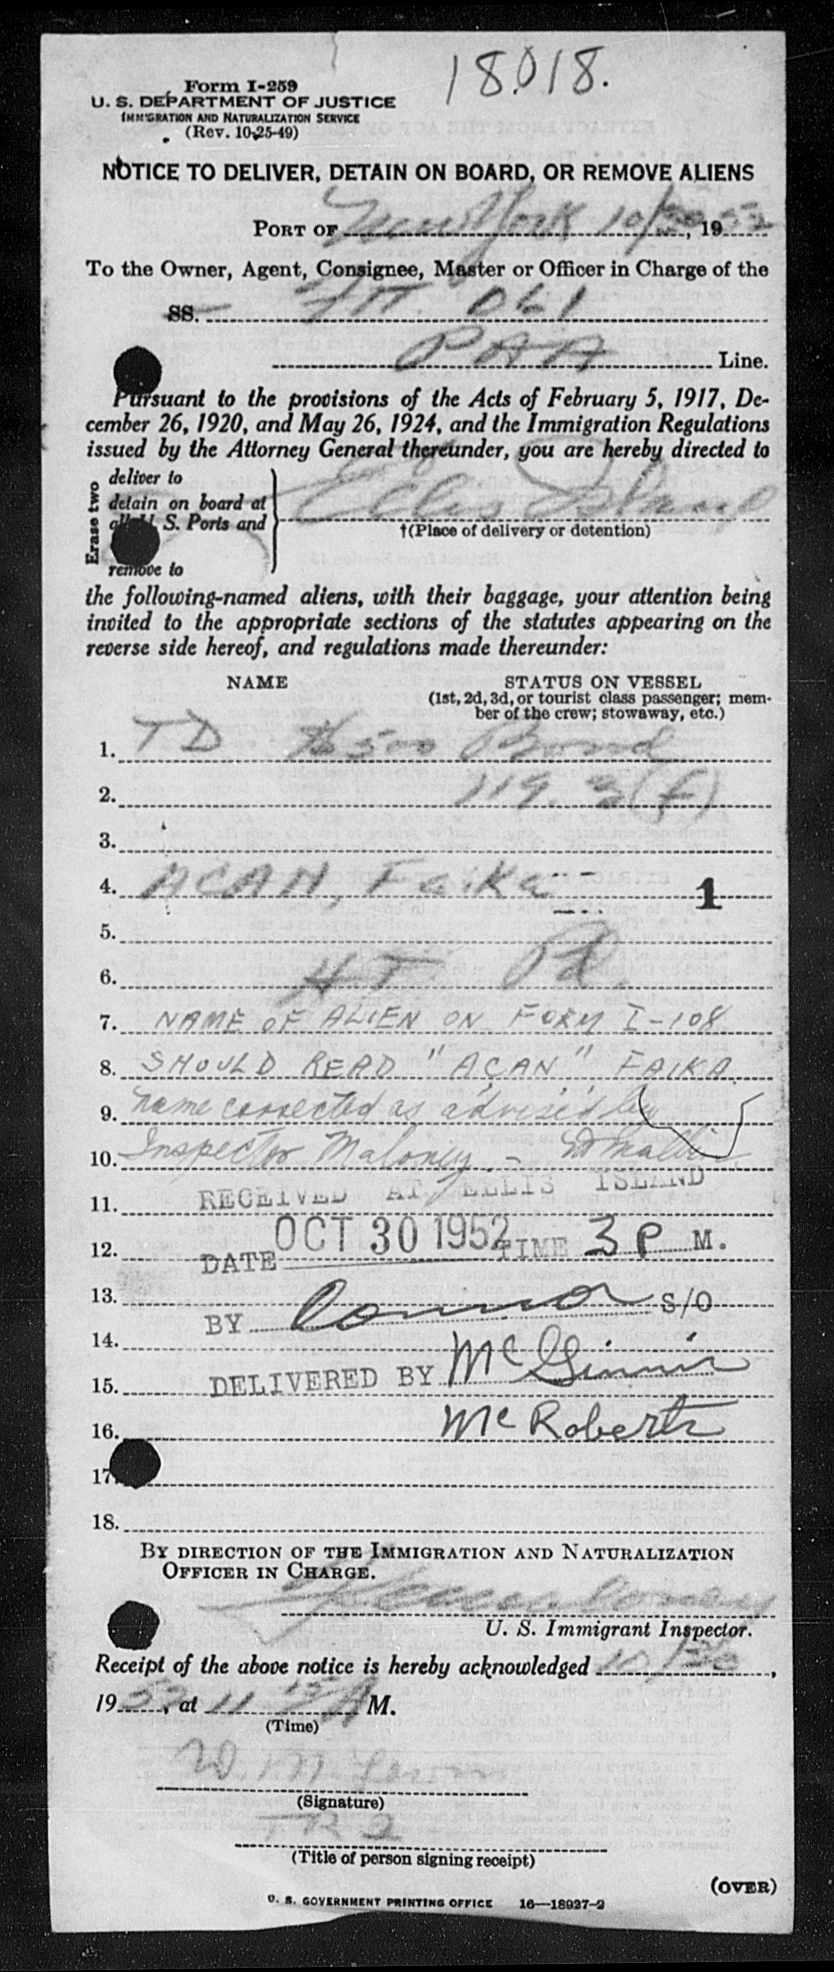 18018.
Form I-259
U. S. DEPARTMENT OF JUSTICE
IMMIGRATION AND NATURALIZATION SERVICE
(Rev. 10-25-49)
NOTICE TO DELIVER, DETAIN ON BOARD, OR REMOVE ALIENS
PORT OF New York 10/30, 19 52
To the Owner, Agent, Consignee, Master or Officer in Charge of the
SS. Flt. 061
PAA Line.
Pursuant to the provisions of the Acts of February 5, 1917, De-
cember 26, 1920, and May 26, 1924, and the Immigration Regulations
issued by the Attorney General thereunder, you are hereby directed to
Erase two
deliver to
detain on board at
all U. S. Ports and
remove to
Ellis Island
†(Place of delivery or detention)
the following-named aliens, with their baggage, your attention being
invited to the appropriate sections of the statutes appearing on the
reverse side hereof, and regulations made thereunder:
NAME STATUS ON VESSEL
(1st, 2d, 3d, or tourist class passenger; mem-
ber of the crew; stowaway, etc.)
1. TD $500 Bond
2. 119. 3(f)
3.
4. ACAN, Faika 1
5.
6. HT Pd.
7. NAME OF ALIEN ON FORM I-108
8. SHOULD READ "ACAN" FAIKA.
9. name corrected as advised by
10. Inspector Maloney. -
11. RECEIVED AT ELLIS ISLAND
12. DATE OCT 30 1952 TIME 3 P M.
13.
BY Connor S/O
14.
15. DELIVERED BY McGinnis
16. McRoberts
17.
18.
BY DIRECTION OF THE IMMIGRATION AND NATURALIZATION
OFFICER IN CHARGE.
U. S. Immigrant Inspector.
Receipt of the above notice is hereby acknowledged 10/30,
19 52, at 11 15 A M.
(Time)
(Signature)
(Title of person signing receipt)
(OVER)
U. S. GOVERNMENT PRINTING OFFICE 16—18927-2